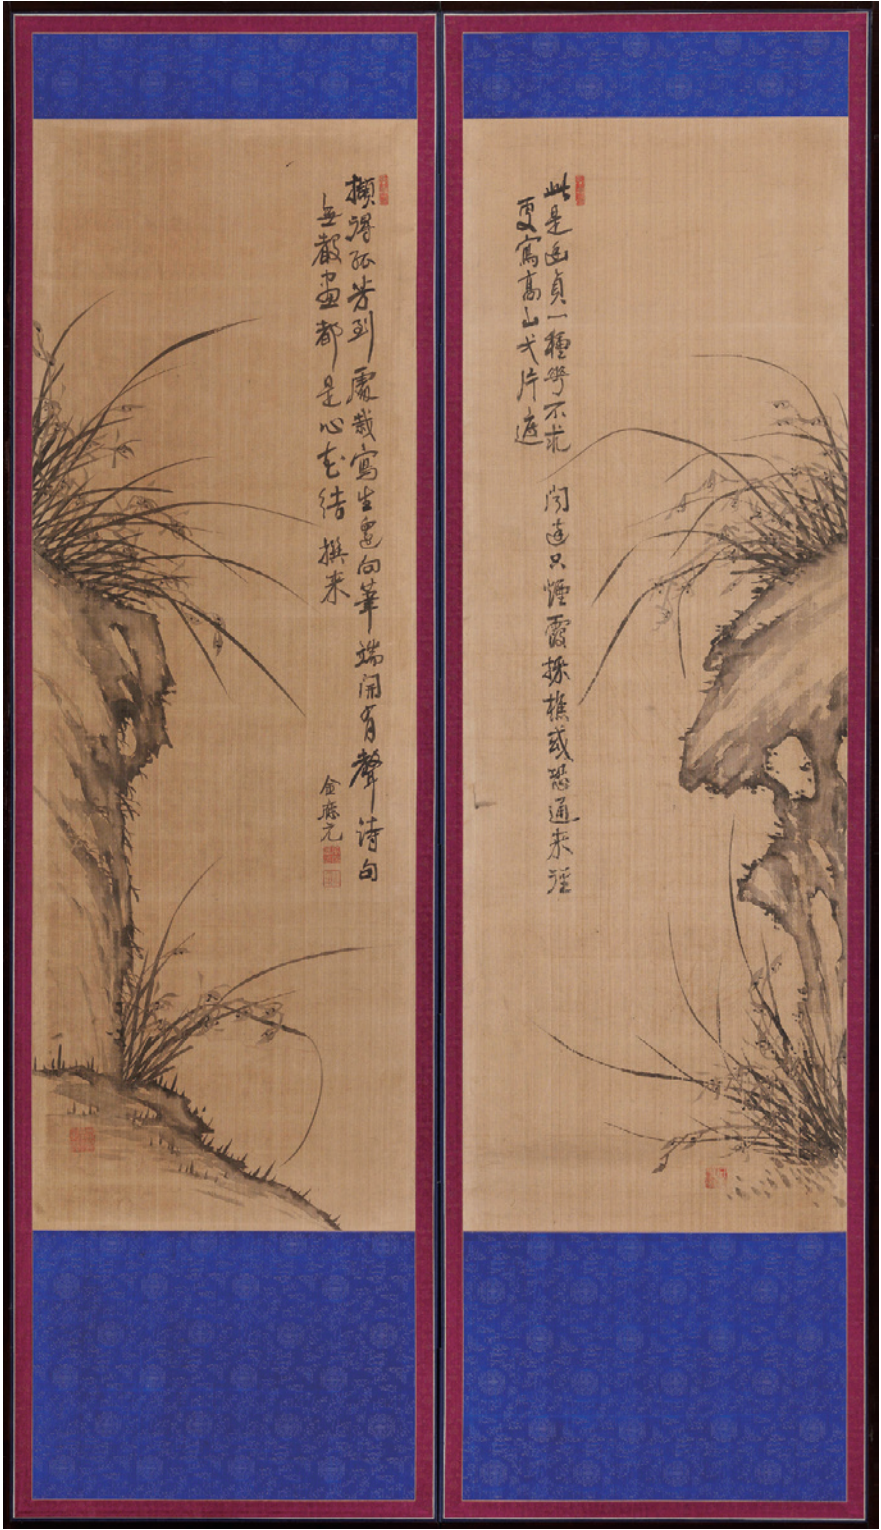 此是幽貞一種華不求聞達只煙霞採樵或恐通來徑
更寫高山弌片遮
擷得孤芳到處栽寫生還向筆端開有聲詩句
無聲畫都是心花結撰來
金應元